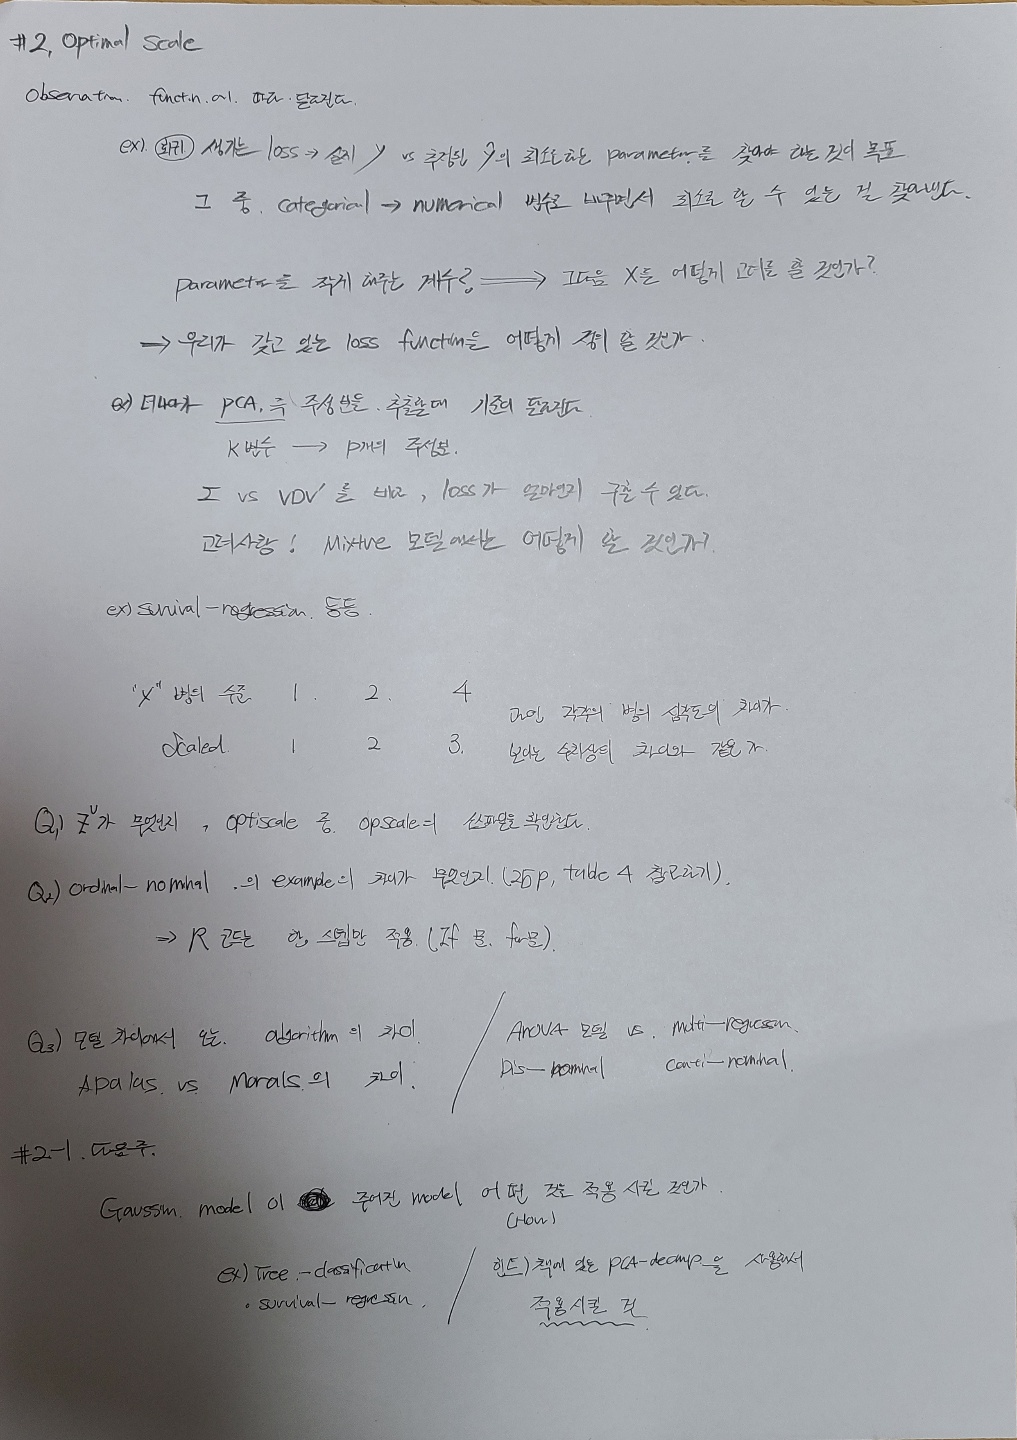 #2, Optimal Scale
Observation. function.에. 따라. 달라진다.
ex). 회귀 생기는 loss → 실제 y vs 추정된 ŷ의 최소로하는 parameter를 찾아야 하는 것이 목표
그 중. categorial → numerical 변수로 바꾸면서 최소로 할 수 있는 걸 찾아낸다.
parameter를 작게 해주는 계수? ⟹ 그다음 X를 어떻게 고려를 할 것인가?
→ 우리가 갖고 있는 loss function을 어떻게 정의 할 것인가.
ex) 더나아가 PCA, 즉 주성분을. 추출할때 기준이 달라진다.
K 변수 → P개의 주성분.
Σ vs VDV' 를 비교, loss가 얼마인지 구할 수 있다.
고려사항! Mixture 모델에서는 어떻게 할 것인가?
ex) survival-regression. 등등.
"X" 병의 수준 1. 2. 4
과연 각각의 병의 심각도의 차이가.
Scaled. 1 2 3.
보이는 수치상의 차이와 같은가.
Q1) Z^U가 무엇인지, optiscale 중. opscale의 확인한다.
Q2) ordinal-nominal .의 example의 차이가 무엇인지. (25p, table 4 참고하기).
⇒ R 코드는 한, 스텝만 적용. (If 문. for문).
Q3) 모델 차이에서 오는. algorithm의 차이.
ANOVA 모델 vs. multi-regression.
Apalas. vs Morals.의 차이.
Dis-nominal conti-nominal.
#2-1. 다음주.
Gaussian. model 이 주어진 model 어떤 것을 적용 시킬 것인가.
(How)
ex) Tree.-classification
힌트) 책에 있는 PCA-decomp.을 사용해서
• survival-regression.
적용시킬 것.